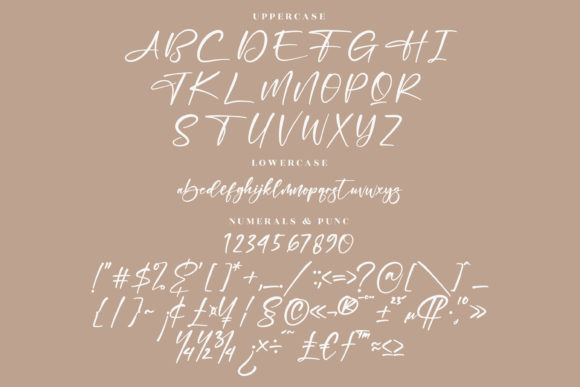 UPPERCASE
ABCDEFGHI
JKLMNOPQR
STUVWXYZ
LOWERCASE
abcdefghijklmnopqrstuvwxyz
NUMERALS & PUNC
1234567890
!"#$%&'[]*+,_./:;<=>?@[\]^_
{|}~¡¢£¤¥¦§©«¬®¯°±²³µ¶·¸¹º»
¼½¾¿×÷ˆ˜£€ƒ™≈≤≥